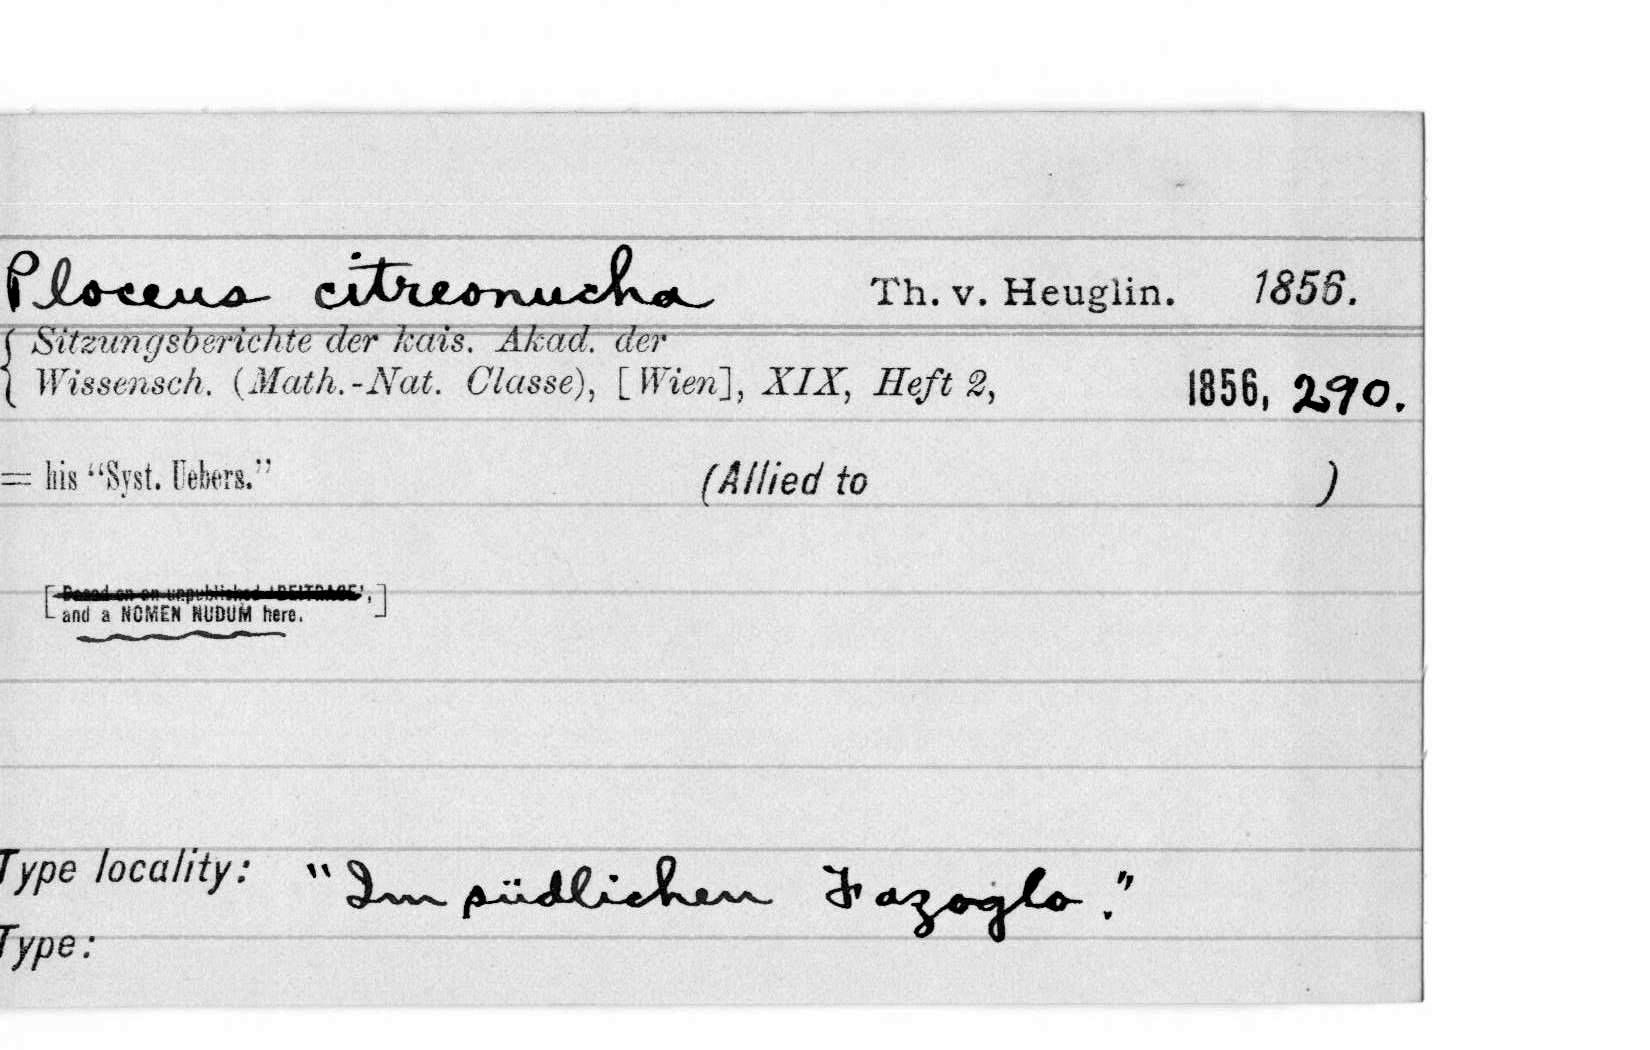 Ploceus citreonucha Th. v. Heuglin. 1856.
{ Sitzungsberichte der kais. Akad. der
Wissensch. (Math.-Nat. Classe), [Wien], XIX, Heft 2, 1856, 290.
= his “Syst. Uebers.” (Allied to )
[ Based on an unpublished 'BEITRAGE', ]
and a NOMEN NUDUM here.
Type locality: "Im südlichen Fazoglo."
Type: